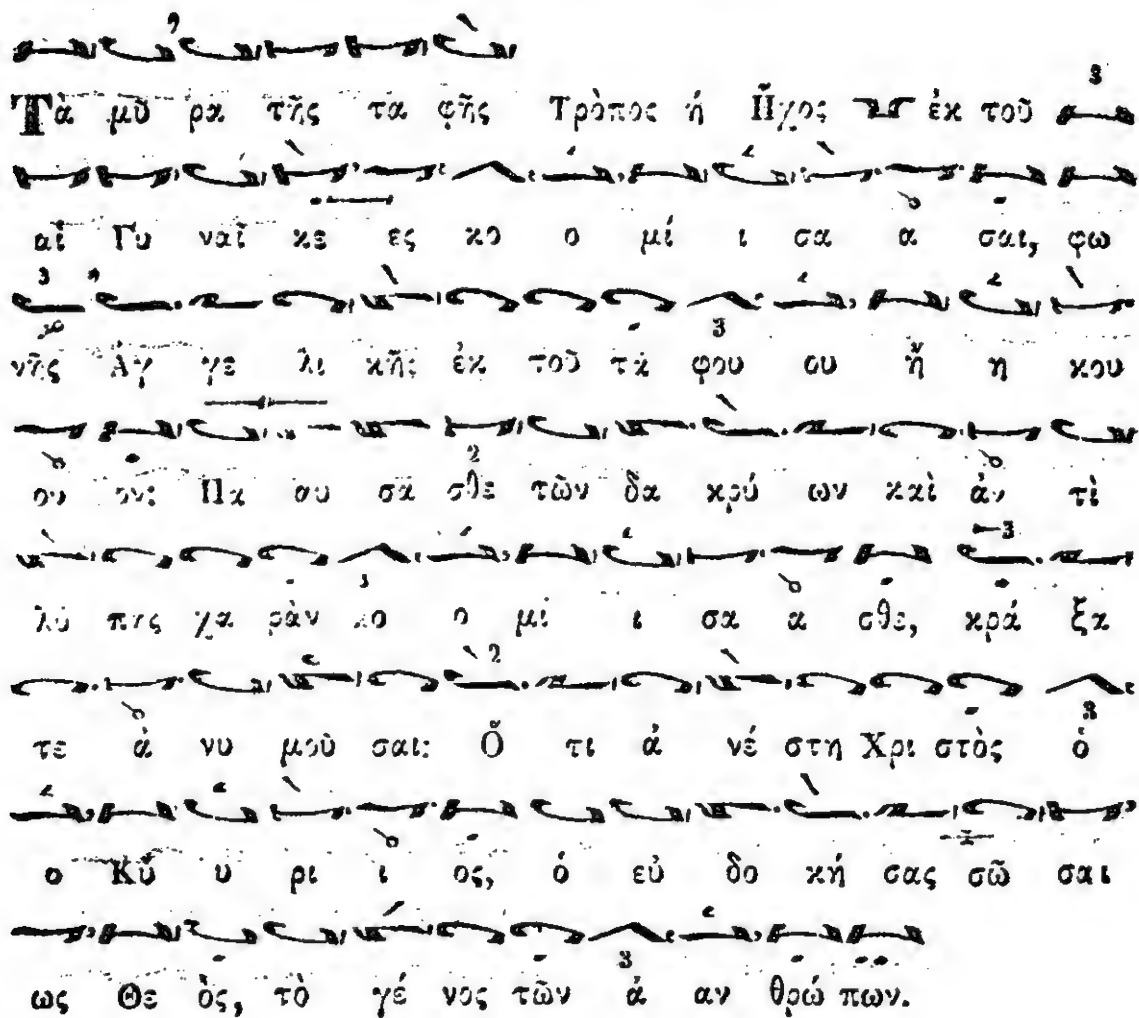 Τὰ μῦ ρα τῆς τα φῆς Τρόπος ἢ Ἦχος ἐκ τοῦ
αἱ Γυ ναῖ κε ες κο ο μί ι σα α σαι, φω
νῆς Ἀγ γε λι κῆς ἐκ τοῦ τά φου ου ἤ η κου
ου ον: Πα αυ σα σθε τῶν δα κρύ ων καὶ ἀν τὶ
λύ πης χα ρὰν κο ο μί ι σα α σθε, κρά ξα
τε ἀ νυ μοῦ σαι: Ὅ τι ἀ νέ στη Χρι στὸς ὁ
ο Κύ υ ρι ι ος, ὁ εὐ δο κή σας σῶ σαι
ως Θε ὸς, τὸ γέ νος τῶν ἀ αν θρώ πων.